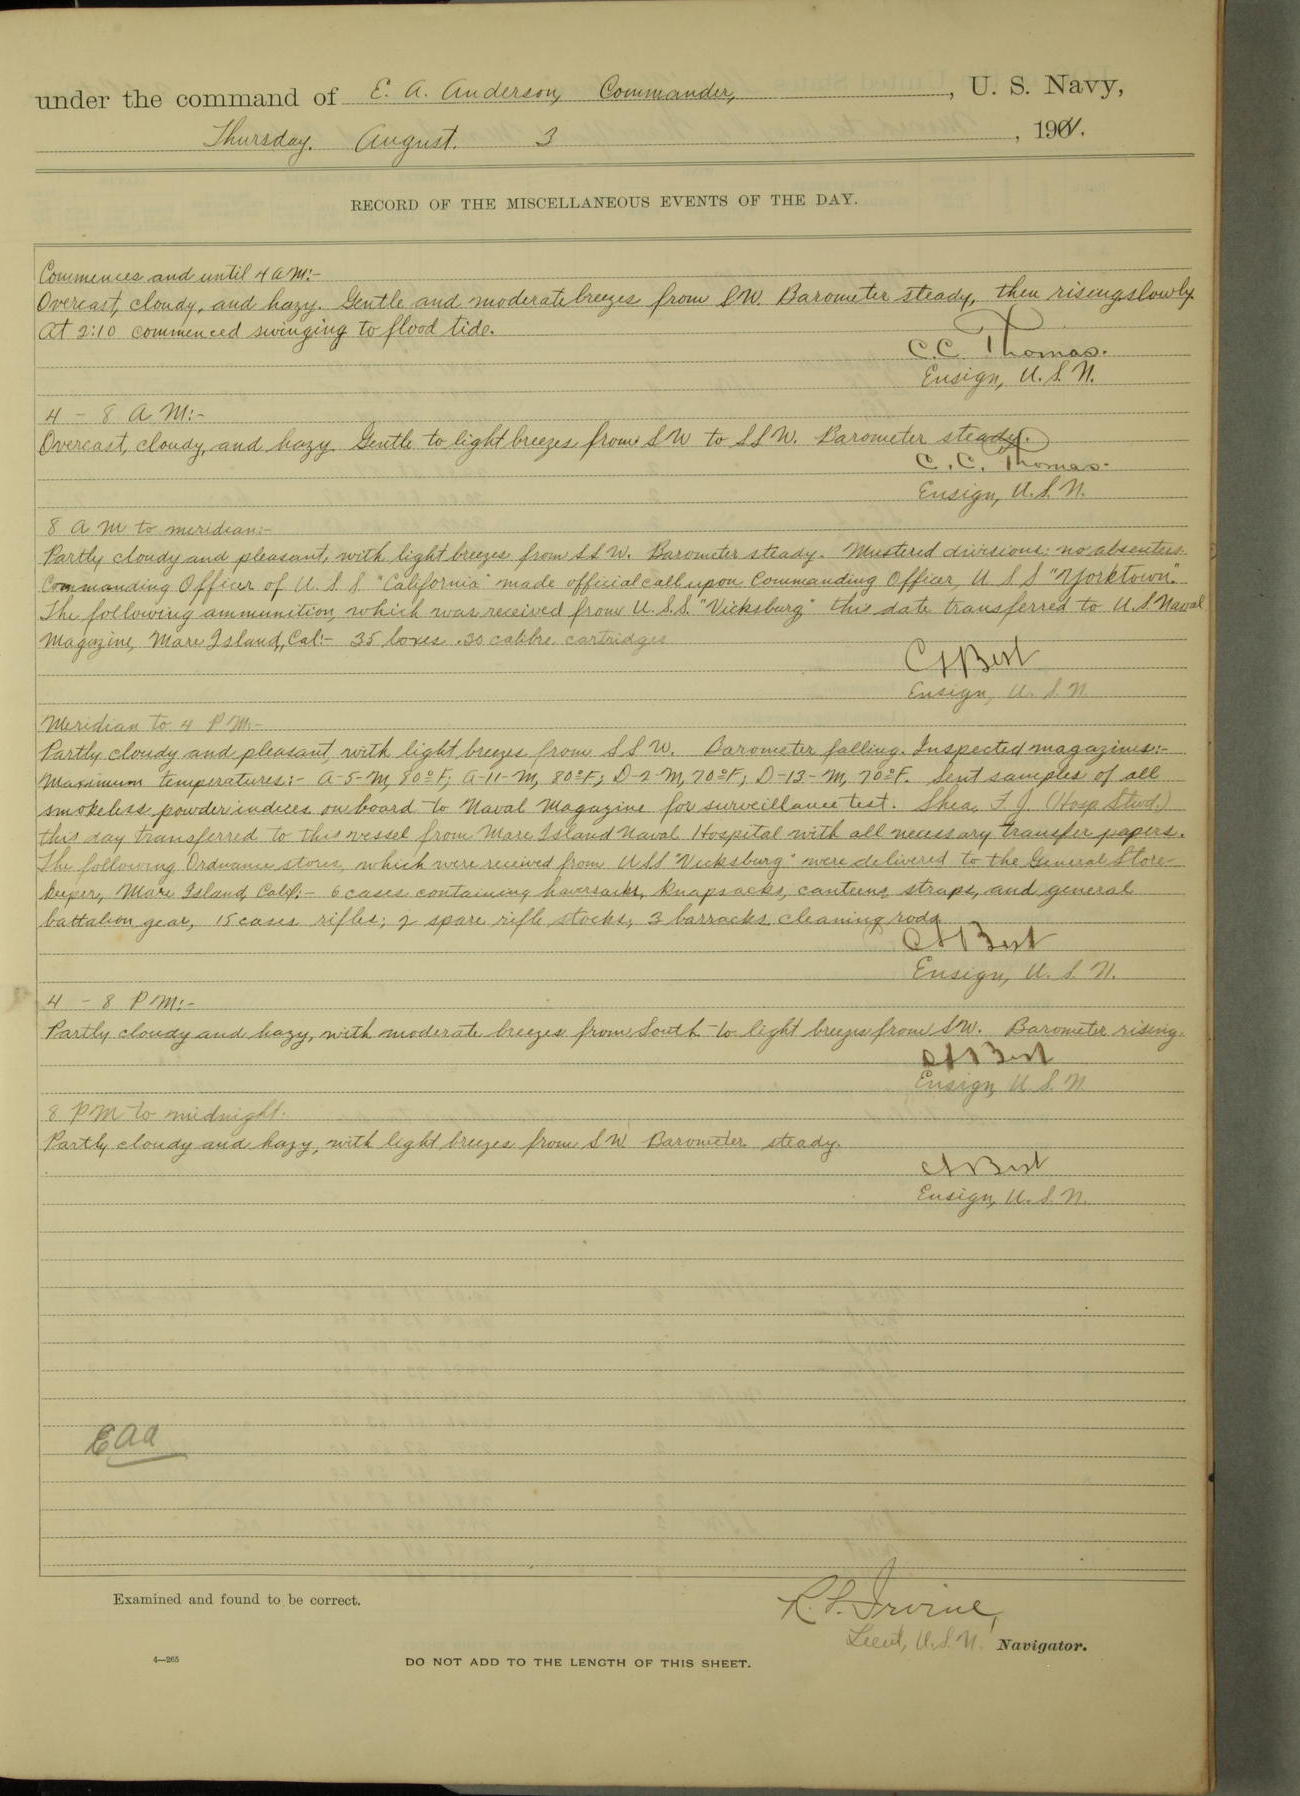 under the command of E. A. Anderson, Commander, , U. S. Navy,
Thursday. August. 3 , 1911.
RECORD OF THE MISCELLANEOUS EVENTS OF THE DAY.
Commences and until 4 A M:-
Overcast, cloudy, and hazy. Gentle and moderate breezes from S W. Barometer steady, then rising slowly.
At 2:10 commenced swinging to flood tide.
C. C. Thomas.
Ensign, U. S. N.
4 - 8 A M:-
Overcast, cloudy, and hazy. Gentle to light breezes from S W to S S W. Barometer steady.
C. C. Thomas.
Ensign, U. S. N.
8 A M to meridian:-
Partly cloudy and pleasant, with light breezes from S S W. Barometer steady. Mustered divisions: no absentees.
Commanding Officer of U. S. S "California" made official call upon Commanding Officer, U S S "Yorktown".
The following ammunition, which was received from U. S. S. "Vicksburg" this date transferred to U. S. Naval
Magazine, Mare Island, Cal:- 35 boxes .30 calibre cartridges
C H Best
Ensign, U. S. N
Meridian to 4 P M:-
Partly cloudy and pleasant, with light breezes from S S W. Barometer falling. Inspected magazines:-
Maximum temperatures:- A-5-M, 80°F; A-11-M, 80°F; D-2-M, 70°F; D-13-M, 70°F. Sent samples of all
smokeless powder indices on board to Naval Magazine for surveillance test. Shea, F. J. (Hosp. Stwd.)
this day transferred to this vessel from Mare Island Naval Hospital with all necessary transfer papers.
The following Ordnance stores, which were received from U S S "Vicksburg" were delivered to the General Store-
keeper, Mare Island, Calif:- 6 cases containing haversacks, knapsacks, canteens, straps, and general
battalion gear, 15 cases rifles; 2 spare rifle stocks; 3 barracks cleaning rods
C H Best
Ensign, U. S. N.
4 - 8 P M:-
Partly cloudy and hazy, with moderate breezes from South to light breezes from S W. Barometer rising.
C H Best
Ensign, U. S. N
8 P M to midnight.
Partly cloudy and hazy, with light breezes from S W Barometer steady.
C H Best
Ensign, U. S. N.
E A A
Examined and found to be correct.
R. L. Irvine,
Lieut, U. S. N. Navigator.
4—265
DO NOT ADD TO THE LENGTH OF THIS SHEET.